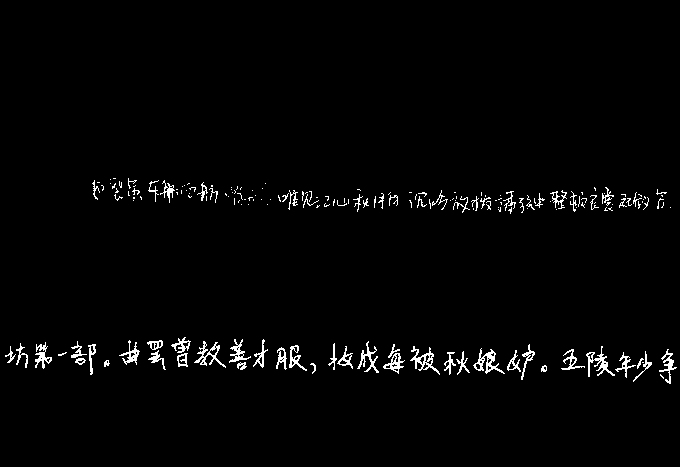 裂帛 东船西舫 唯见江心秋月白 沉吟放拨 整顿衣裳起敛容
坊第一部。曲罢曾教善才服，妆成每被秋娘妒。五陵年少争